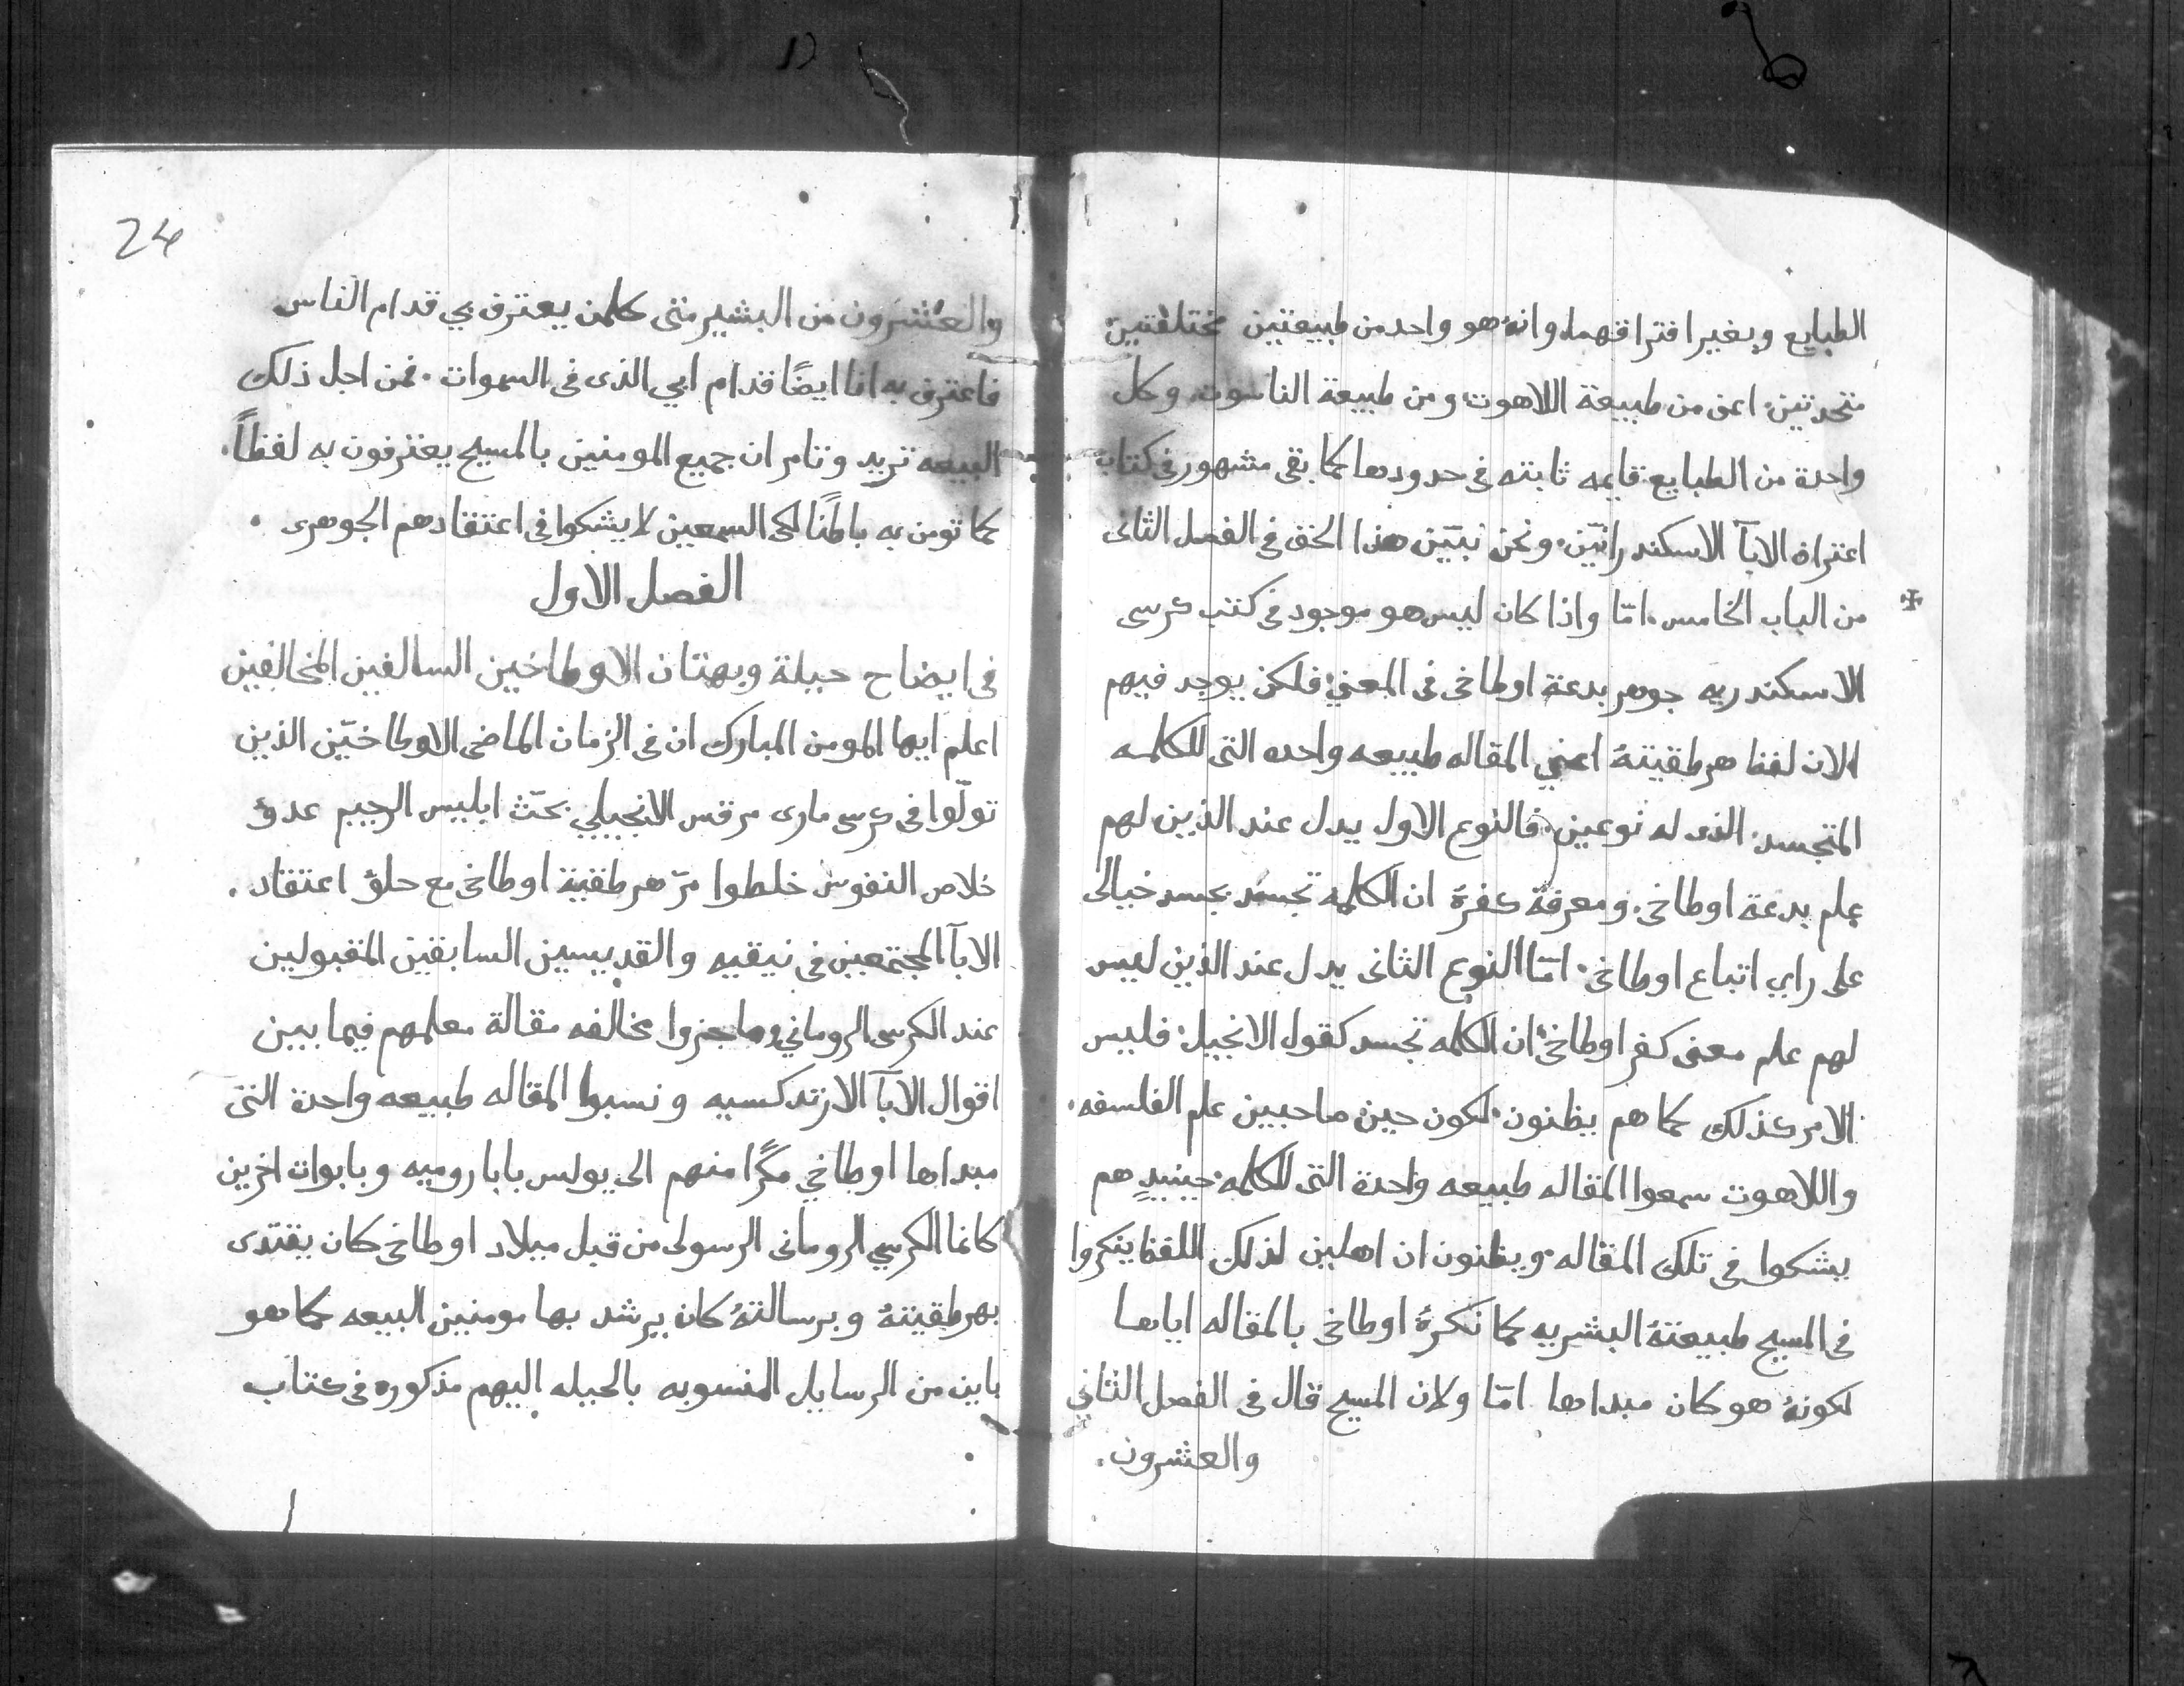 الطبايع وبغير افتراقهما، وانهُ هو واحد من طبيعتين مختلفتين
متحدتين، اعنى من طبيعة اللاهوت ومن طبيعة الناسوت، وكل
واحدة من الطبايع قايمه ثابته فى حدودها كما بقى مشهور فى كتاب
اعتراف الابآ الاسكندرانيّن، ونحن نبيّن هذا الحق فى الفصل الثانى
من الباب الخامس، امّا واذا كان ليس هو موجود فى كتب كرسى
الاسكندريه جوهر بدعة اوطاخى فى المعنى، فلكن يوجد فيهم
الان لفظ هرطقيتهُ اعني المقاله طبيعه واحده التى للكلمه
المتجسد، الذى له نوعين، فالنوع الاول يدل عند الذين لهم
علم بدعة اوطاخى، ومعرفة كفرهُ ان الكلمه تجسد بجسد خيالى
على راي اتباع اوطاخى، امّا النوع الثانى يدل عند الذين ليس
لهم علم معنى كفر اوطاخى، ان الكلمه تجسد كقول الانجيل، فليس
الامر كذلك كما هم يظنون، لكون حين صاحبين علم الفلسفه،
واللاهوت سمعوا المقاله طبيعه واحدة التى للكلمه، حينيدٍ هم
يشكوا فى تلك المقاله، ويظنون ان اصلين لذلك اللفظ ينكروا
فى المسيح طبيعتهُ البشريه كما نكرهُ اوطاخى بالمقاله اياها
لكونهُ هو كان مبداها امّا ولان المسيح قال فى الفصل الثاني
والعشرون.
24
والعشرون من البشير متى كلمن يعترف بي قدام الناس
فاعترف به انا ايضًا قدام ابي الذى فى السموات، فمن اجل ذلك
البيعه تريد وتامر ان جميع المومنين بالمسيح يعترفون به لفظاً،
كما تومن به باطنًا لكى السمعين لا يشكوا فى اعتقادهم الجوهرى .
الفصل الاول
فى ايضاح حيلة وبهتان الاوطاخين السالفين المخالفين
اعلم ايها المومن المبارك ان فى الزمان الماضى الاوطاخيّن الذين
تولّوا فى كرسى مارى مرقس الانجيلي بحثّ ابليس الرجيم عدوّ
خلاص النفوس خلطوا مرّ هرطقية اوطاخى مع حلوّ اعتقاد .
الابآ المجتمعين فى نيقيه والقديسين السابقين المقبولين
عند الكرسى الرومانى، مخالفه مقالة معلمهم فيما بين
اقوال الابآ الارتدكسيه ونسبوا المقاله طبيعه واحدة التى
مبداها اوطاخي مكرًا منهم الى يولس بابا روميه وبابوات اخرين
كانما الكرسي الرومانى الرسولى من قبل ميلاد اوطاخى كان يقتدى
بهرطقيتهُ وبرسالتهُ كان يرشد بها مومنين البيعه كما هو
باين من الرسايل المنسوبه بالحيله اليهم مذكوره فى كتاب